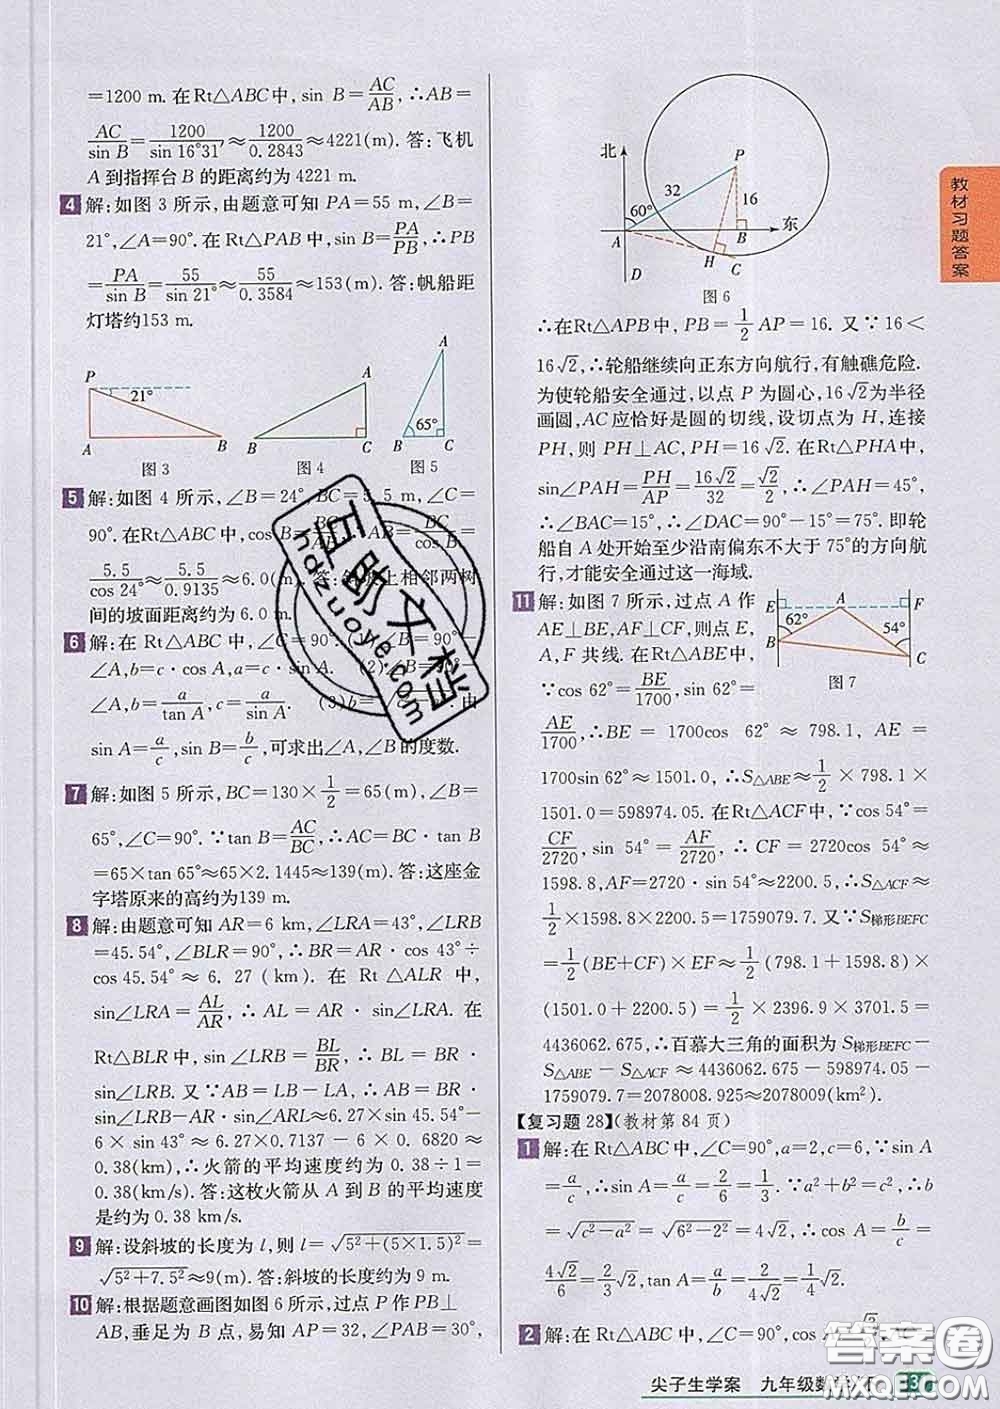 =1200 m.在Rt△ABC中,sin B=AC/AB,∴AB=
AC/sin B=1200/sin 16°31′≈1200/0.2843≈4221(m).答:飞机
A到指挥台B的距离约为4221 m.
4 解:如图3所示,由题意可知PA=55 m,∠B=
21°,∠A=90°.在Rt△PAB中,sin B=PA/PB,∴PB
=PA/sin B=55/sin 21°≈55/0.3584≈153(m).答:帆船距
灯塔约153 m.
P 21° A B
图3
A B C
图4
A 65° B C
图5
5 解:如图4所示,∠B=24°,BC=5.5 m,∠C=
90°.在Rt△ABC中,cos B=BC/AB,∴AB=BC/cos B=
5.5/cos 24°≈5.5/0.9135≈6.0(m).答:斜坡上相邻两树
间的坡面距离约为6.0 m.
6 解:在Rt△ABC中,∠C=90°.(1)∠B=90°-
∠A,b=c·cos A,a=c·sin A. (2)∠B=90°-
∠A,b=a/tan A,c=a/sin A. (3)b=由
sin A=a/c,sin B=b/c,可求出∠A,∠B的度数.
7 解:如图5所示,BC=130×1/2=65(m),∠B=
65°,∠C=90°.∵tan B=AC/BC,∴AC=BC·tan B
=65×tan 65°≈65×2.1445≈139(m).答:这座金
字塔原来的高约为139 m.
8 解:由题意可知AR=6 km,∠LRA=43°,∠LRB
=45.54°,∠BLR=90°,∴BR=AR·cos 43°÷
cos 45.54°≈6.27(km).在Rt△ALR中,
sin∠LRA=AL/AR,∴AL=AR·sin∠LRA.在
Rt△BLR中,sin∠LRB=BL/BR,∴BL=BR·
sin∠LRB.又∵AB=LB-LA,∴AB=BR·
sin∠LRB-AR·sin∠ALR≈6.27×sin 45.54°-
6×sin 43°≈6.27×0.7137-6×0.6820≈
0.38(km),∴火箭的平均速度约为0.38÷1=
0.38(km/s).答:这枚火箭从A到B的平均速度
是约为0.38 km/s.
9 解:设斜坡的长度为l,则l=√(5²+(5×1.5)²)=
√(5²+7.5²)≈9(m).答:斜坡的长度约为9 m.
10 解:根据题意画图如图6所示,过点P作PB⊥
AB,垂足为B点,易知AP=32,∠PAB=30°,
北 P 32 16 60° A B 东 H C D
图6
∴在Rt△APB中,PB=1/2AP=16.又∵16<
16√2,∴轮船继续向正东方向航行,有触礁危险.
为使轮船安全通过,以点P为圆心,16√2为半径
画圆,AC应恰好是圆的切线,设切点为H,连接
PH,则PH⊥AC,PH=16√2.在Rt△PHA中,
sin∠PAH=PH/AP=16√2/32=√2/2,∴∠PAH=45°,
∴∠BAC=15°,∴∠DAC=90°-15°=75°.即轮
船自A处开始至少沿南偏东不大于75°的方向航
行,才能安全通过这一海域.
11 解:如图7所示,过点A作
AE⊥BE,AF⊥CF,则点E,
A,F共线.在Rt△ABE中,
∵cos 62°=BE/1700,sin 62°=
E A F 62° 54° B C
图7
AE/1700,∴BE=1700cos 62°≈798.1,AE=
1700sin 62°≈1501.0,∴S△ABE≈1/2×798.1×
1501.0=598974.05.在Rt△ACF中,∵cos 54°=
CF/2720,sin 54°=AF/2720,∴CF=2720cos 54°≈
1598.8,AF=2720·sin 54°≈2200.5,∴S△ACF≈
1/2×1598.8×2200.5=1759079.7.又∵S梯形BEFC
=1/2(BE+CF)×EF≈1/2(798.1+1598.8)×
(1501.0+2200.5)=1/2×2396.9×3701.5=
4436062.675,∴百慕大三角的面积为S梯形BEFC-
S△ABE-S△ACF≈4436062.675-598974.05-
1759079.7=2078008.925≈2078009(km²).
【复习题28】(教材第84页)
1 解:在Rt△ABC中,∠C=90°,a=2,c=6,∵sin A
=a/c,∴sin A=a/c=2/6=1/3.∵a²+b²=c²,∴b
=√(c²-a²)=√(6²-2²)=4√2,∴cos A=b/c=
4√2/6=2/3√2,tan A=a/b=2/4√2=1/4√2.
2 解:在Rt△ABC中,∠C=90°,cos
教材习题答案
尖子生学案 九年级数学
百助文档
hdzuoye.com
答案圈
MXQE.COM